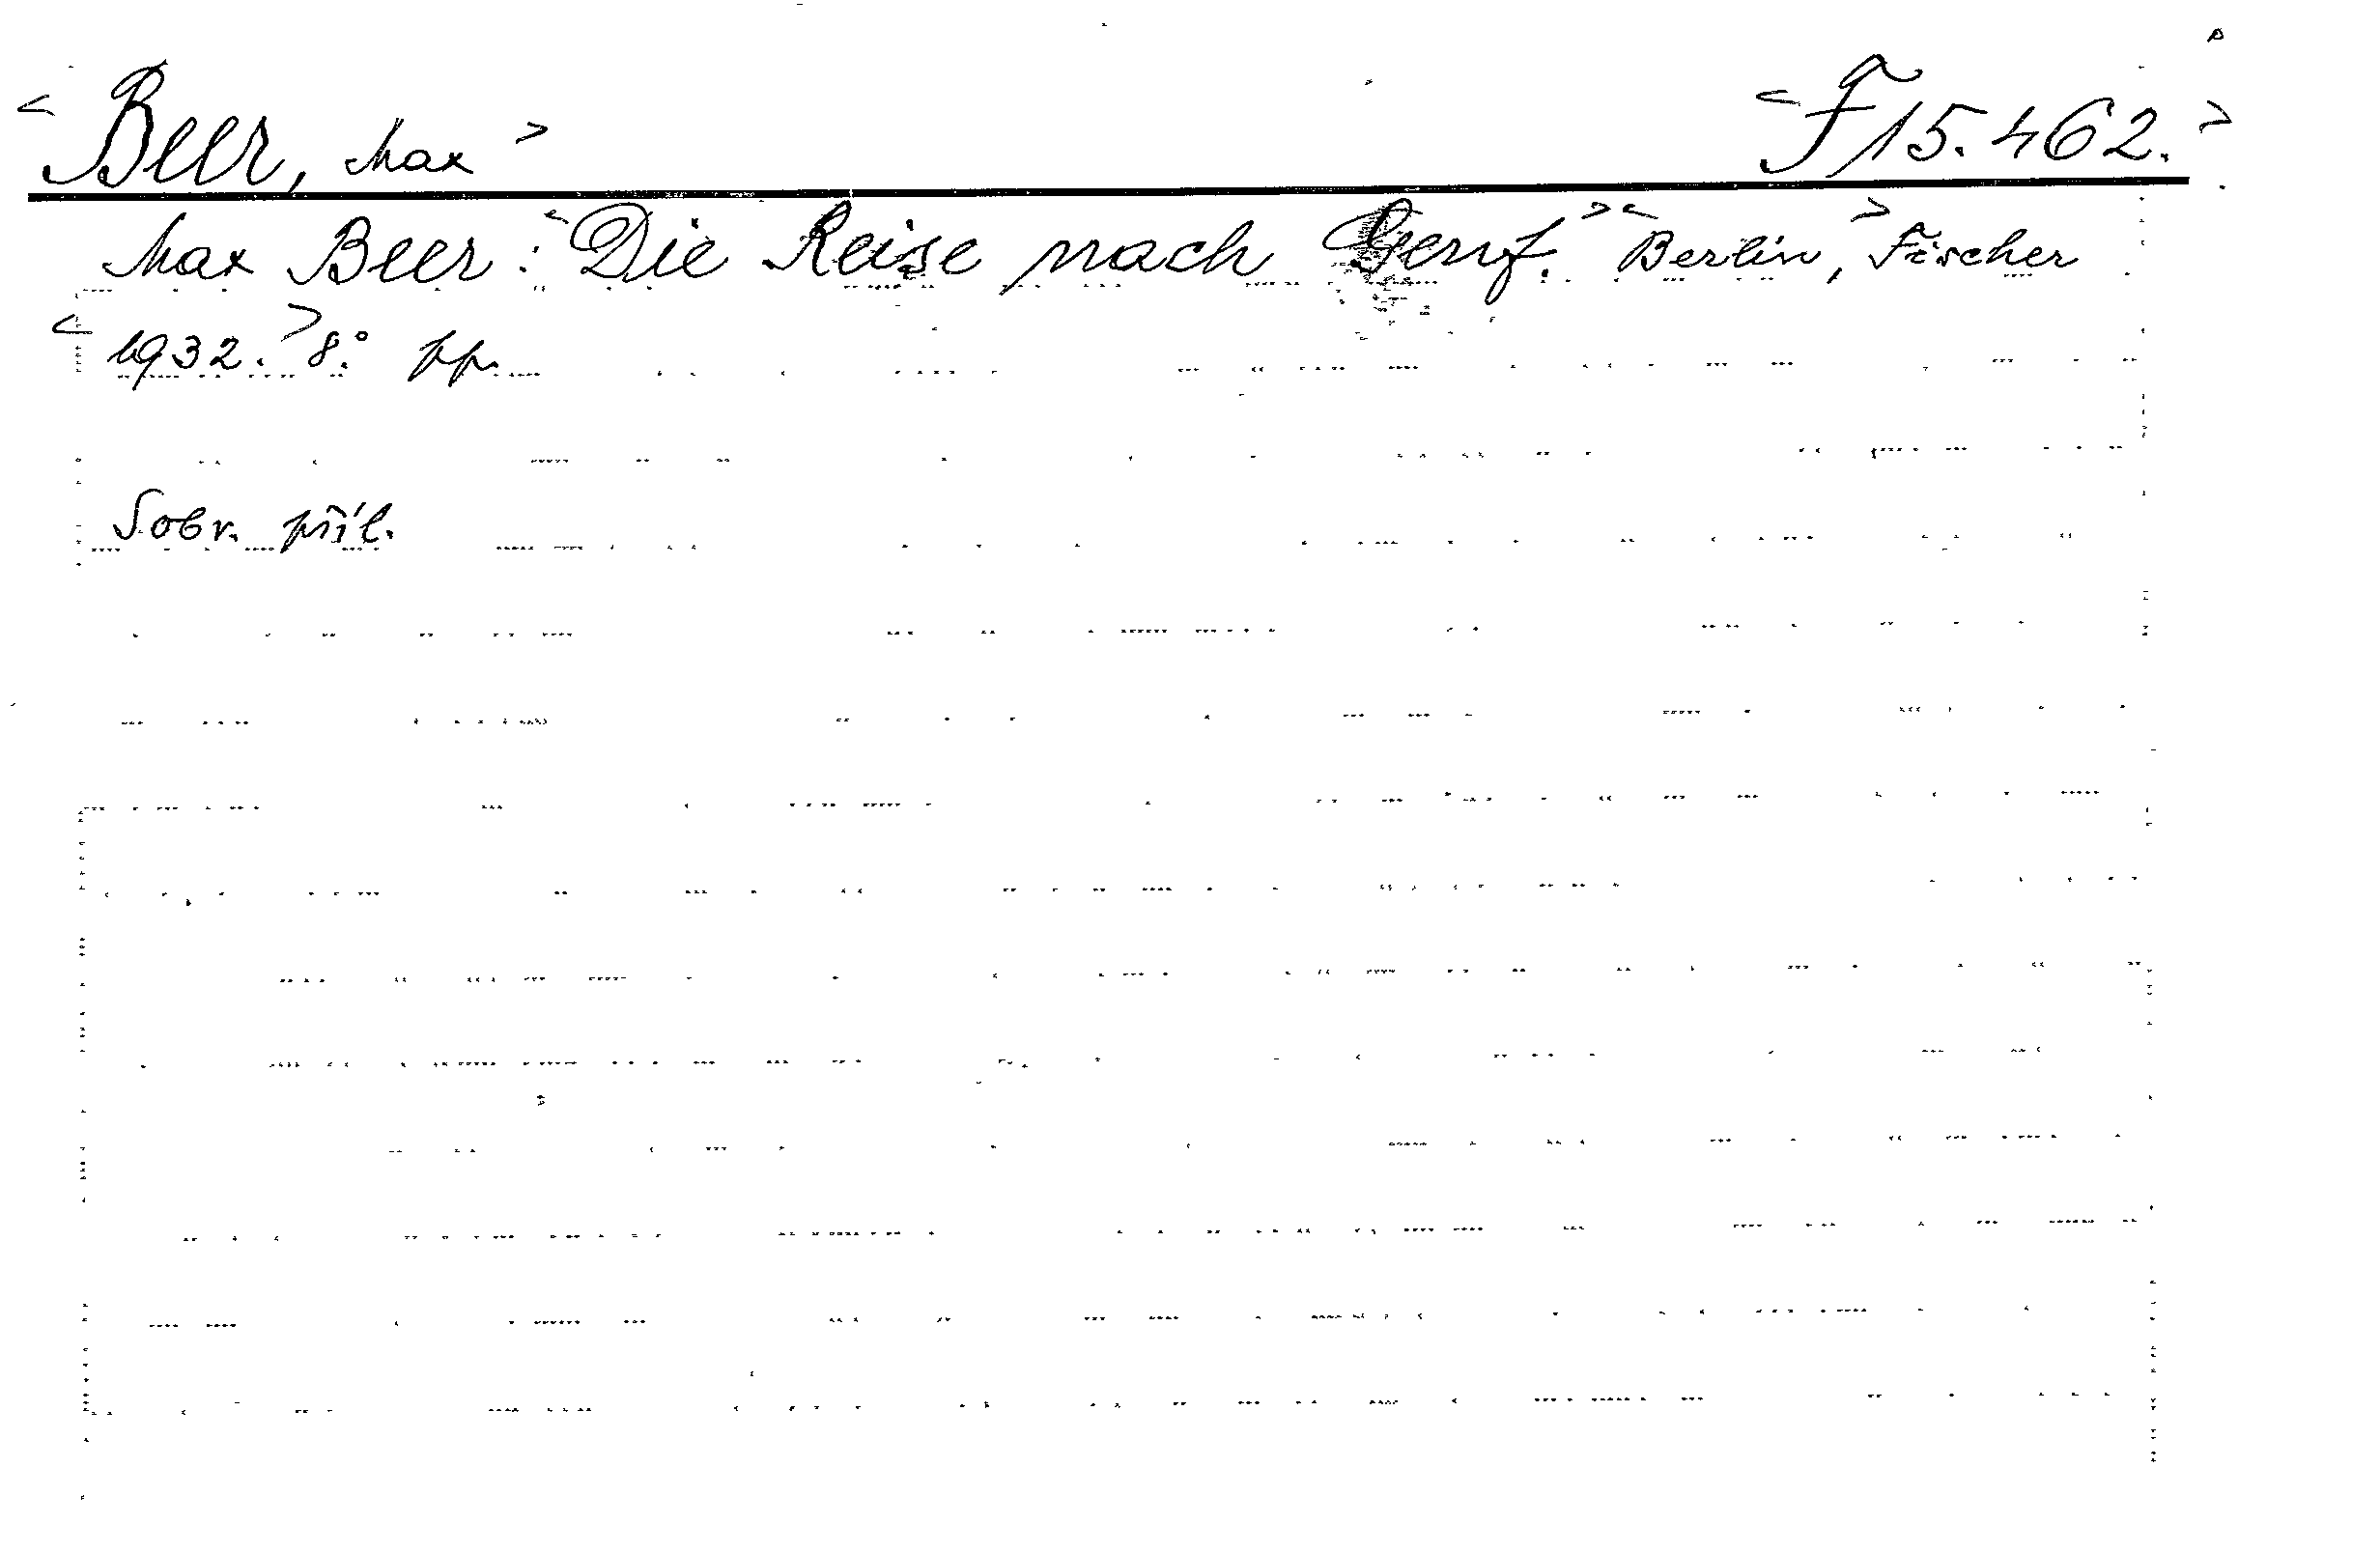 <Beer, Max> <F 15.462.>
Max Beer: <Die Reise nach Genf.> <Berlin,> Fischer
<1932.> 8.° pp.
Sobr. příl.